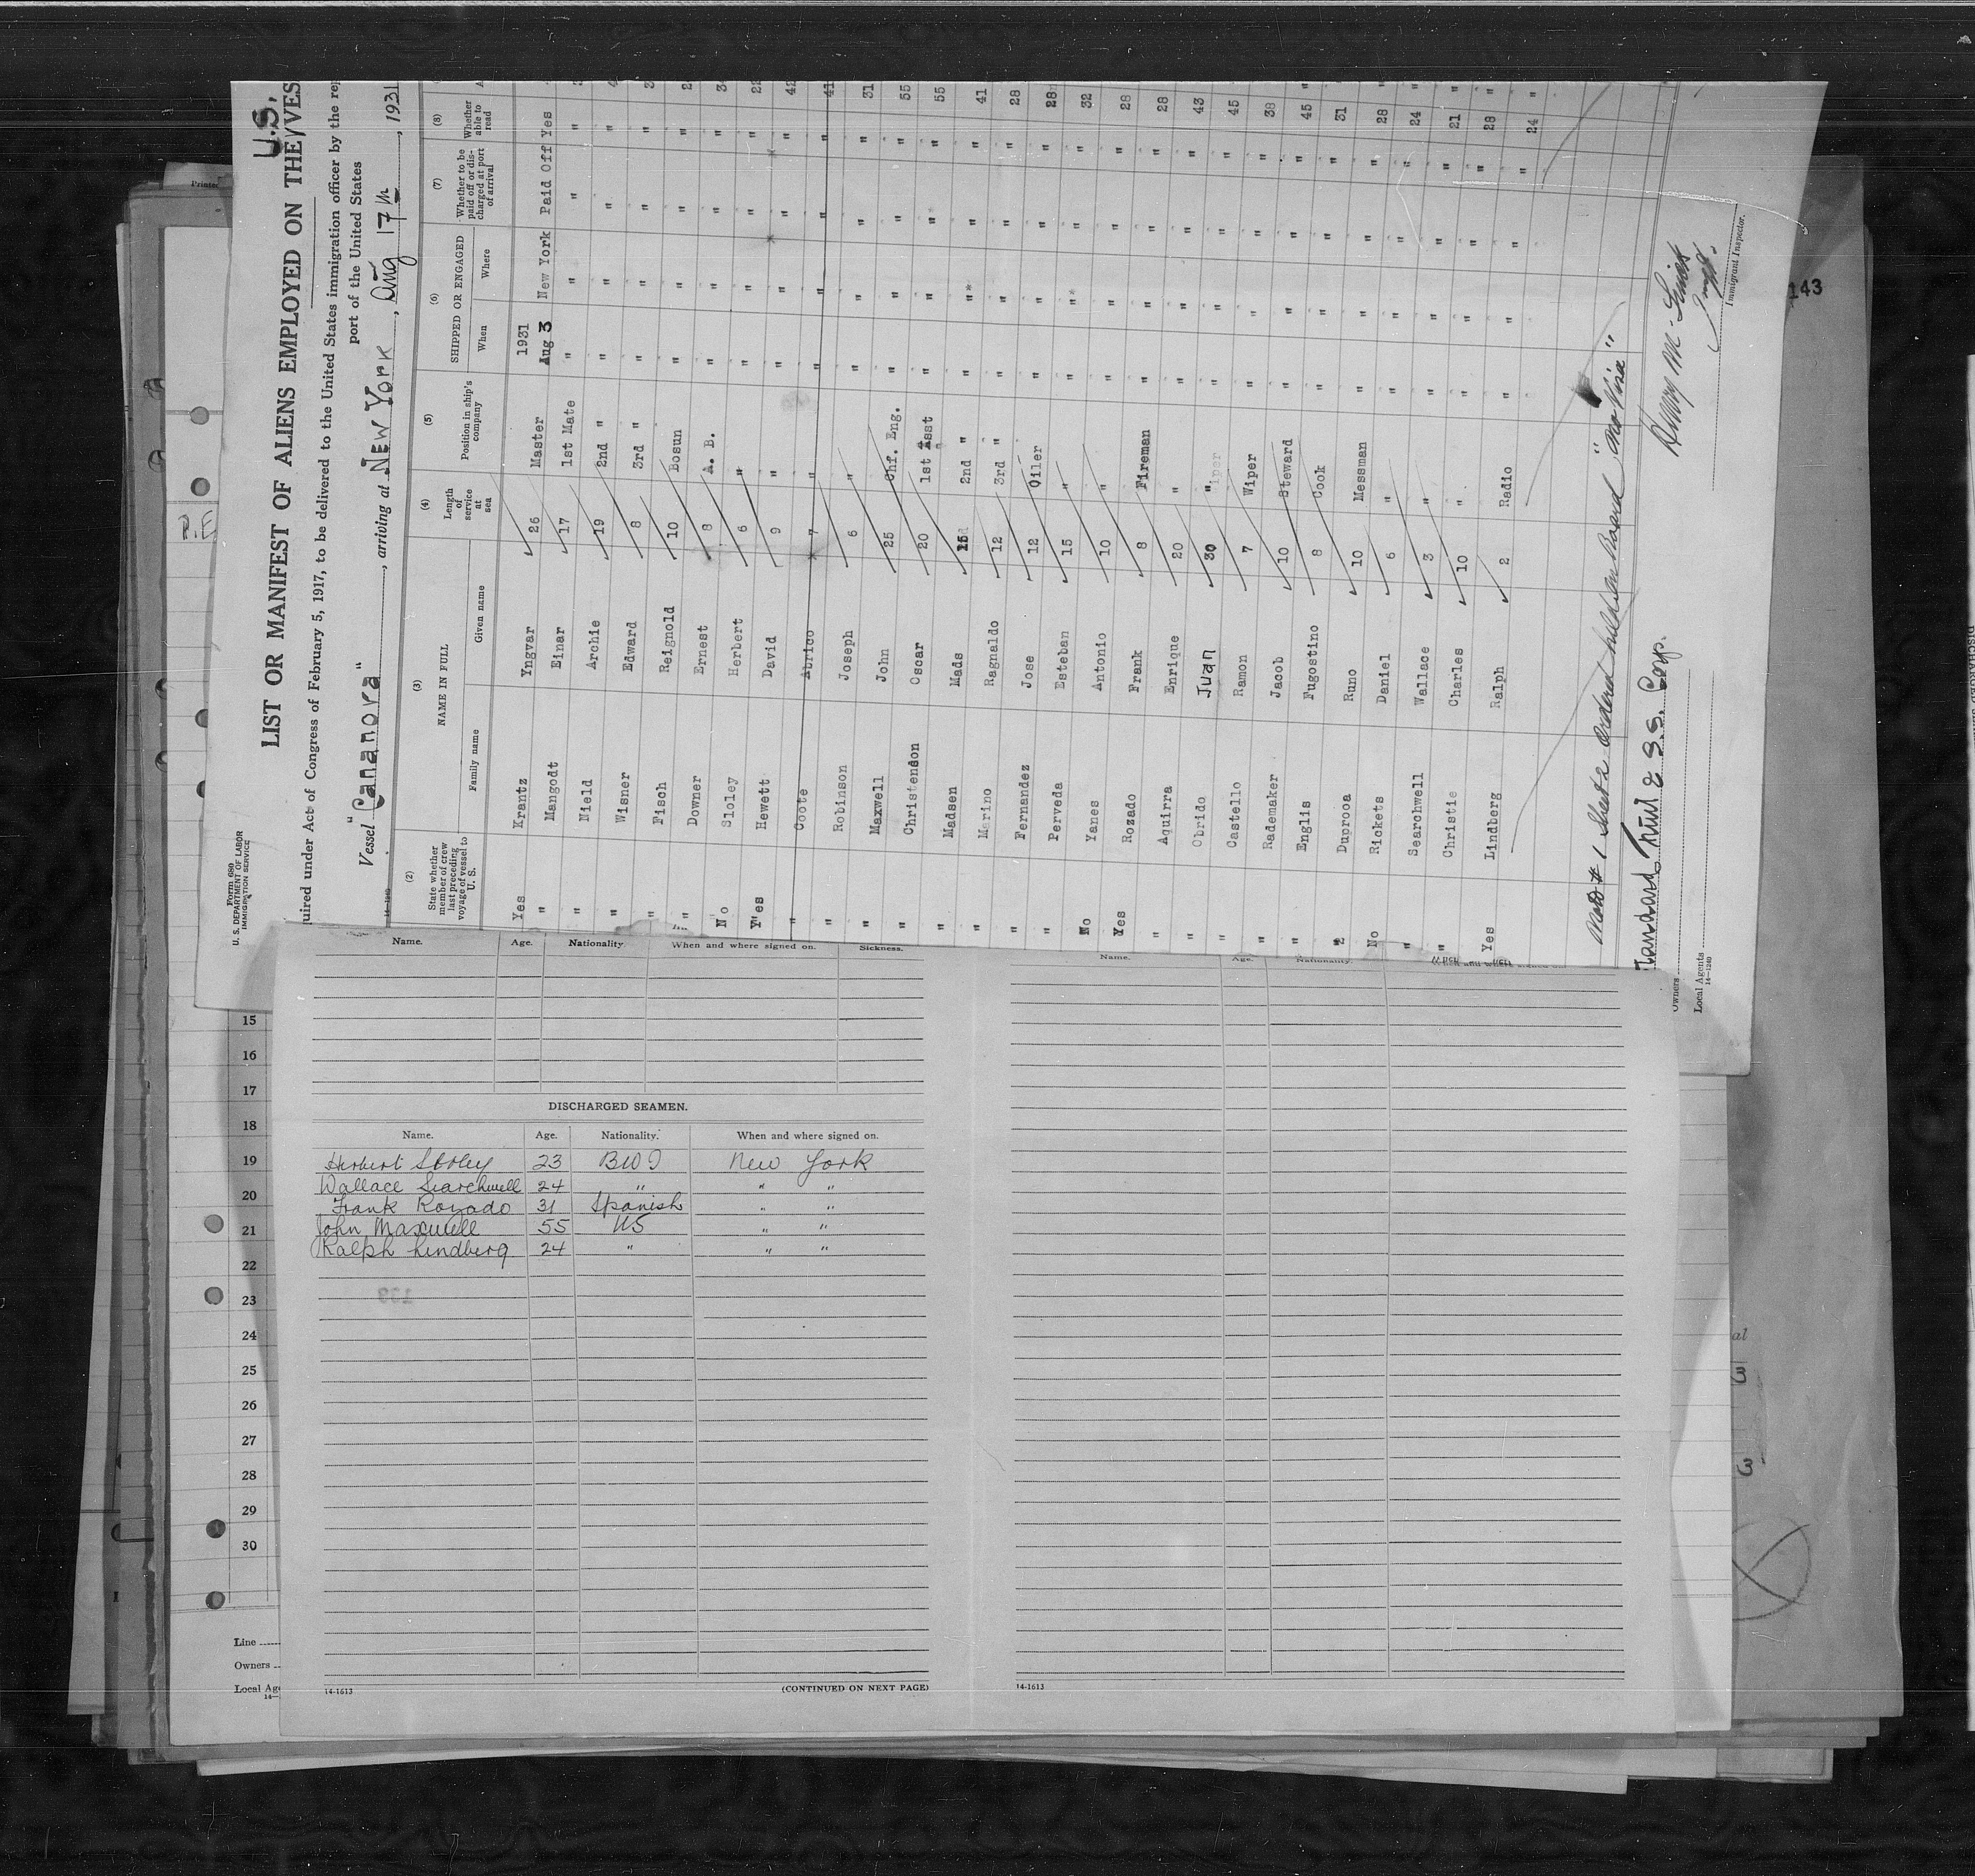 U.S.
Form 680
U. S. DEPARTMENT OF LABOR
IMMIGRATION SERVICE
LIST OR MANIFEST OF ALIENS EMPLOYED ON THE VES
uired under Act of Congress of February 5, 1917, to be delivered to the United States immigration officer by the rep
port of the United States
Vessel "Cananova", arriving at New York, Aug 17th, 1931
(2) (3) (4) (5) (6) (7) (8)
State whether member of crew last preceding voyage of vessel to U. S. NAME IN FULL Family name Given name Length of service at sea Position in ship's company SHIPPED OR ENGAGED When Where Whether to be paid off or discharged at port of arrival Whether able to read
1931
Yes Krantz Yngvar 26 Master Aug 3 New York Paid Off Yes
" Mangodt Einar 17 1st Mate " " " "
" Nield Archie 19 2nd " " " " "
" Wisner Edward 8 3rd " " " " "
" Fisch Reignold 10 Bosun " " " "
" Downer Ernest 8 A. B. " " " "
No Sloley Herbert 6 " " " " " 22
Yes Hewett David 9 " " " " " 42
" Coote Abrico 7 " " " " " 41
" Robinson Joseph 6 " " " " " 31
" Maxwell John 25 Chf. Eng. " " " " 55
" Christendon Oscar 20 1st Asst " " " " 55
" Madsen Mads 15 2nd " " " " " 41
" Marino Ragnaldo 12 3rd " " " " " 28
" Fernandez Jose 12 Oiler " " " " 28
" Perveda Esteban 15 " " " " " 32
No Yanes Antonio 10 " " " " " 28
Yes Rozado Frank 8 Fireman " " " " 28
" Aquirra Enrique 20 " " " " " 43
" Obrido Juan 30 " " " " " 45
" Castello Ramon 7 Wiper " " " " 38
" Rademaker Jacob 10 Steward " " " " 45
" Englis Fugostino 8 Cook " " " " 31
" Duprooa Runo 10 Messman " " " " 28
No Rickets Daniel 6 " " " " " 24
" Searchwell Wallace 3 " " " " " 21
" Christie Charles 10 " " " " " 28
Yes Lindberg Ralph 2 Radio " " " " 24
# 1 Sheet 2 Ordered held on Board "No Visa"
Standard Fruit & S.S. Corp.
Owners
Local Agents
14-1240
Henry M.
Immigrant Inspector.
143
Printed
Name. Age. Nationality. When and where signed on. Sickness.
Name. Age. Nationality. When and where signed on.
DISCHARGED SEAMEN.
Name. Age. Nationality. When and where signed on.
Herbert Sloley 23 BWI New York
Wallace Searchwell 24 " " "
Frank Rozado 31 Spanish " "
John Maxwell 55 US " "
Ralph Lindberg 24 " " "
14-1613
(CONTINUED ON NEXT PAGE)
14-1613
15
16
17
18
19
20
21
22
23
24
25
26
27
28
29
30
Line
Owners
Local Ag
14—
al
3
3